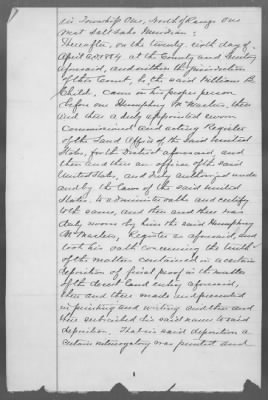 in Township One, North of Range One
West Salt Lake Meridian:
Thereafter, on the twenty sixth day of
April A.D. 1884 at the County and Territory
aforesaid, and within the jurisdiction
of this Court, he, the said William B.
Child, came in his proper person
before one Humphrey McMaster, then
and there a duly appointed sworn
commissioned and acting Register
of the Land Office of the said United
States, for the District aforesaid, and
then and there an officer of the said
United States, and duly authorized under
and by the laws of the said United
States to administer oaths and certify
to the same, and then and there was
duly sworn by him the said Humphrey
McMaster, Register as aforesaid, and
took his oath concerning the truth
of the matters contained in a certain
deposition of final proof in the matter
of the desert land entry aforesaid,
then and there made and presented
in printing and writing and then and
there subscribed his said name to said
deposition. That in said deposition a
certain interrogatory was printed and